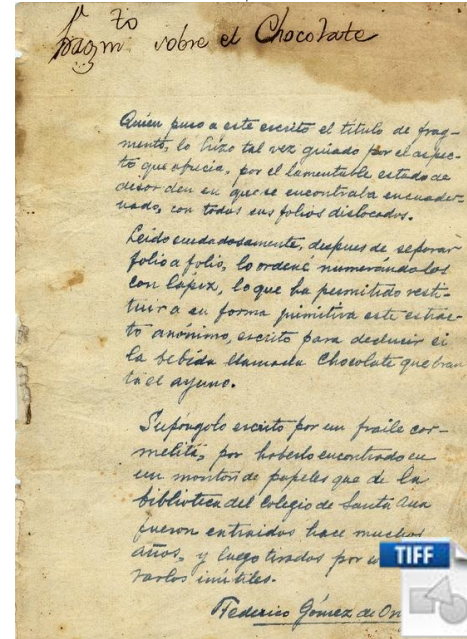 Fragm.to sobre el Chocolate
Quien puso a este escrito el titulo de frag-
mento, lo hizo tal vez guiado por el aspec-
to que ofrecia, por el lamentable estado de
desorden en que se encontraba encuader-
nado, con todos sus folios dislocados.
Leido cuidadosamente, despues de separar
folio a folio, lo ordené numerándolos
con lápiz, lo que ha permitido resti-
tuir a su forma primitiva este extrac-
to anónimo, escrito para deducir si
la bebida llamada Chocolate quebran
ta el ayuno.
Supóngolo escrito por un fraile car-
melita, por haberlo encontrado en
un monton de papeles que de la
biblioteca del Colegio de Santa Ana
fueron extraidos hace muchos
años, y luego tirados por
rarlos inútiles.
Federico Gómez de
TIFF